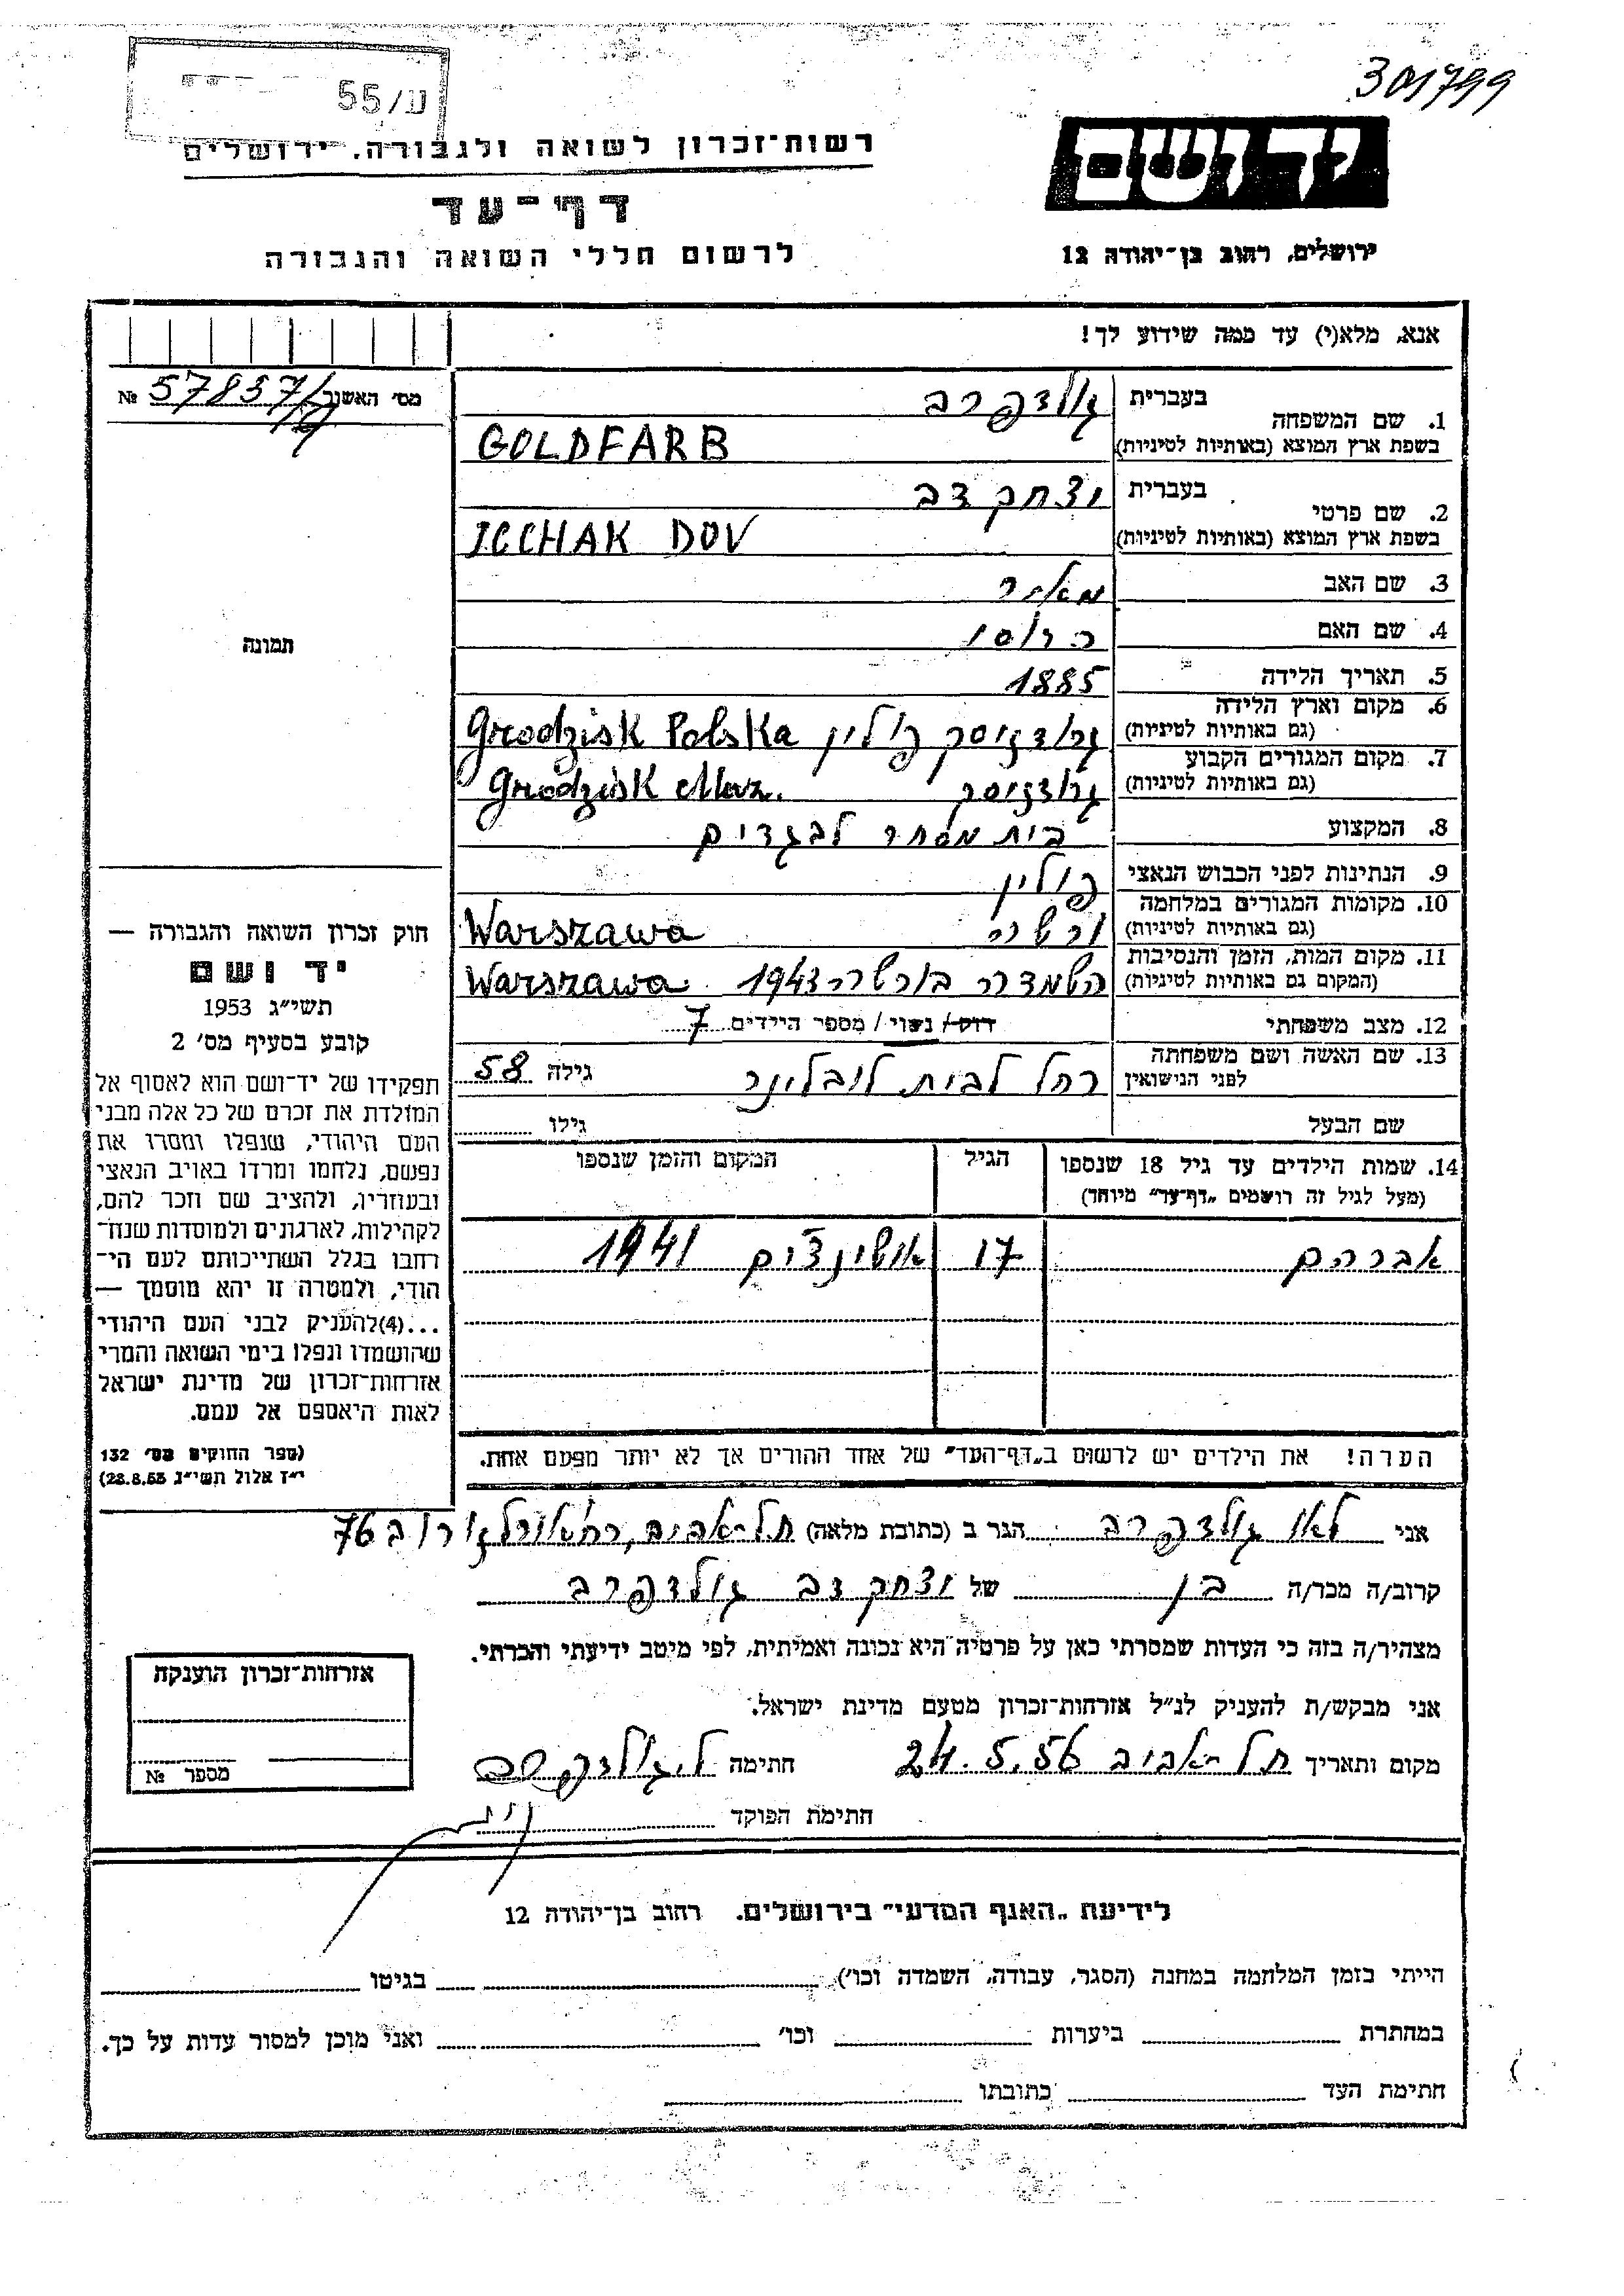 301799
ע/55
רשות־זכרון לשואה ולגבורה, ירושלים
יד ושם
דף־עד
לרשום חללי השואה והגבורה
ירושלים, רחוב בן־יהודה 12
אנא, מלא(י) עד כמה שידוע לך!
מס' האשור 57837/ №
1. שם המשפחה בעברית גולדפרב
בשפת ארץ המוצא (באותיות לטיניות) GOLDFARB
2. שם פרטי בעברית יצחק דב
בשפת ארץ המוצא (באותיות לטיניות) ICCHAK DOV
3. שם האב מאיר
4. שם האם
5. תאריך הלידה 1885
6. מקום וארץ הלידה (גם באותיות לטיניות) גרודזיסק פולין Grodzisk Polska
7. מקום המגורים הקבוע (גם באותיות לטיניות) גרודזיסק Grodzisk Maz.
8. המקצוע בית מסחר לבגדים
9. הנתינות לפני הכבוש הנאצי פולין
10. מקומות המגורים במלחמה (גם באותיות לטיניות) ורשה Warszawa
11. מקום המות, הזמן והנסיבות (המקום גם באותיות לטיניות) השמדה בורשה 1943 Warszawa
12. מצב משפחתי רווק / נשוי / מספר הילדים 7
13. שם האשה ושם משפחתה לפני הנישואין רחל לבית לובלינר גילה 58
שם הבעל גילו
14. שמות הילדים עד גיל 18 שנספו (מעל לגיל זה רושמים „דף־עד" מיוחד) הגיל המקום והזמן שנספו
אברהם 17 אושוינצ'ים 1941
הערה! את הילדים יש לרשום ב„דף־העד" של אחד ההורים אך לא יותר מפעם אחת.
תמונה
חוק זכרון השואה והגבורה —
יד ושם
תשי"ג 1953
קובע בסעיף מס' 2
תפקידו של יד־ושם הוא לאסוף אל
המולדת את זכרם של כל אלה מבני
העם היהודי, שנפלו ומסרו את
נפשם, נלחמו ומרדו באויב הנאצי
ובעוזריו, ולהציב שם וזכר להם,
לקהילות, לארגונים ולמוסדות שנח־
רבו בגלל השתייכותם לעם הי־
הודי, ולמטרה זו יהא מוסמך —
...(4)להעניק לבני העם היהודי
שהושמדו ונפלו בימי השואה והמרי
אזרחות־זכרון של מדינת ישראל
לאות היאספם אל עמם.
(ספר החוקים מס' 132
י"ז אלול תשי"ג 28.8.53)
אני לאון גולדפרב הגר ב (כתובת מלאה) תל־אביב, רח' ארלוזורוב 76
קרוב/ה מכר/ה בן של יצחק דב גולדפרב
מצהיר/ה בזה כי העדות שמסרתי כאן על פרטיה היא נכונה ואמיתית, לפי מיטב ידיעתי והכרתי.
אני מבקש/ת להעניק לנ"ל אזרחות־זכרון מטעם מדינת ישראל.
מקום ותאריך תל־אביב 24.5.56 חתימה ל. גולדפרב
חתימת הפוקד
אזרחות־זכרון הוענקה
מספר №
לידיעת „האגף המדעי" בירושלים. רחוב בן־יהודה 12
הייתי בזמן המלחמה במחנה (הסגר, עבודה, השמדה וכו') בגיטו
במחתרת ביערות וכו' ואני מוכן למסור עדות על כך.
חתימת העד כתובתו